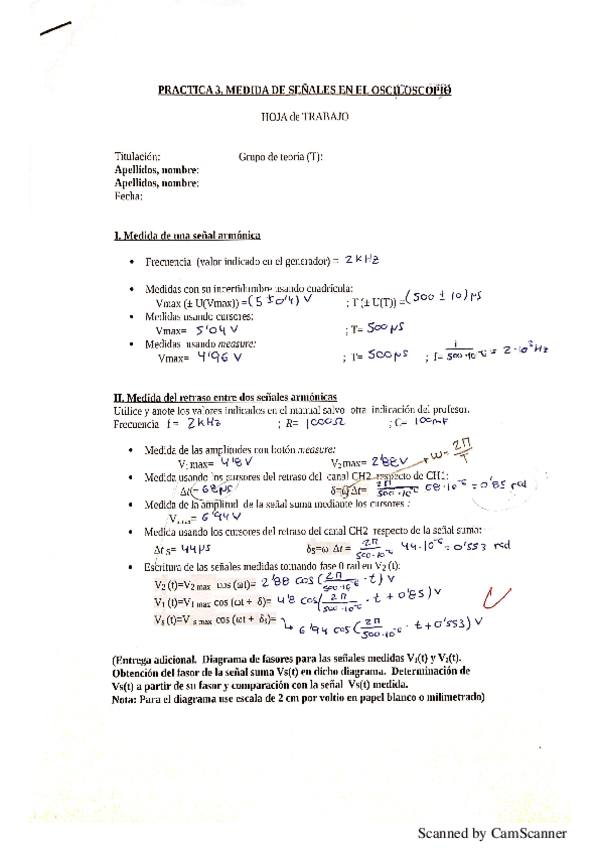 PRACTICA 3. MEDIDA DE SEÑALES EN EL OSCILOSCOPIO
HOJA de TRABAJO
Titulación: Grupo de teoría (T):
Apellidos, nombre:
Apellidos, nombre:
Fecha:
I. Medida de una señal armónica
• Frecuencia (valor indicado en el generador) = 2 kHz
• Medidas con su incertidumbre usando cuadrícula:
Vmax (± U(Vmax)) = (5 ± 0'4) V ; T (± U(T)) = (500 ± 10) μs
• Medidas usando cursores:
Vmax= 5'04 V ; T= 500 μs
• Medidas usando measure:
Vmax= 4'96 V ; T= 500 μs ; f= 1/500·10⁻⁶ = 2·10³ Hz
II. Medida del retraso entre dos señales armónicas
Utilice y anote los valores indicados en el manual salvo otra indicación del profesor.
Frecuencia f = 2 kHz ; R= 1000 Ω ; C= 100 nF
• Medida de las amplitudes con botón measure:
V₁ max= 4'8 V V₂ max= 2'88 V → ω = 2π/T
• Medida usando los cursores del retraso del canal CH2 respecto de CH1:
Δt= 68 μs δ=ω Δt= 2π/500·10⁻⁶ 68·10⁻⁶ = 0'85 rad
• Medida de la amplitud de la señal suma mediante los cursores :
Vs max= 6'94 V
• Medida usando los cursores del retraso del canal CH2 respecto de la señal suma:
Δt s= 44 μs δs=ω Δt = 2π/500·10⁻⁶ 44·10⁻⁶ = 0'553 rad
• Escritura de las señales medidas tomando fase 0 rad en V₂ (t):
V₂ (t)=V₂ max cos (ωt)= 2'88 cos (2π/500·10⁻⁶ · t) V
V₁ (t)=V₁ max cos (ωt + δ)= 4'8 cos (2π/500·10⁻⁶ · t + 0'85) V
Vs (t)=V s max cos (ωt + δs)= ↳ 6'94 cos (2π/500·10⁻⁶ · t + 0'553) V
(Entrega adicional. Diagrama de fasores para las señales medidas V₁(t) y V₂(t).
Obtención del fasor de la señal suma Vs(t) en dicho diagrama. Determinación de
Vs(t) a partir de su fasor y comparación con la señal Vs(t) medida.
Nota: Para el diagrama use escala de 2 cm por voltio en papel blanco o milimetrado)
Scanned by CamScanner